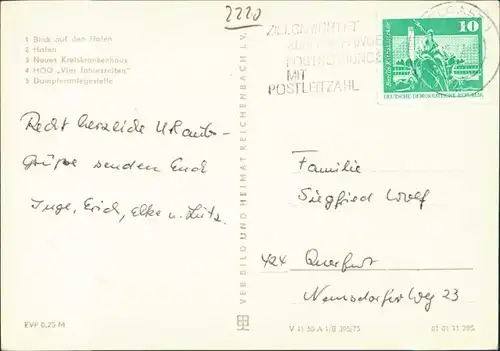 2220
1 Blick auf den Hafen
2 Hafen
3 Neues Kreiskrankenhaus
4 HOG „Vier Jahreszeiten"
5 Dampferanlegestelle
MIT
POSTLEITZAHL
10
DEUTSCHE DEMOKRATISCHE REPUBLIK
Recht herzliche Urlaubs-
grüße senden Euch
Inge, Erich, Elke u. Lutz.
VEB BILD UND HEIMAT REICHENBACH I. V.
Familie
Siegfried Wolf
424 Querfurt
Nemsdorfer Weg 23
EVP 0,25 M
V 11 50 A 1/B 205/75
01 01 11 205